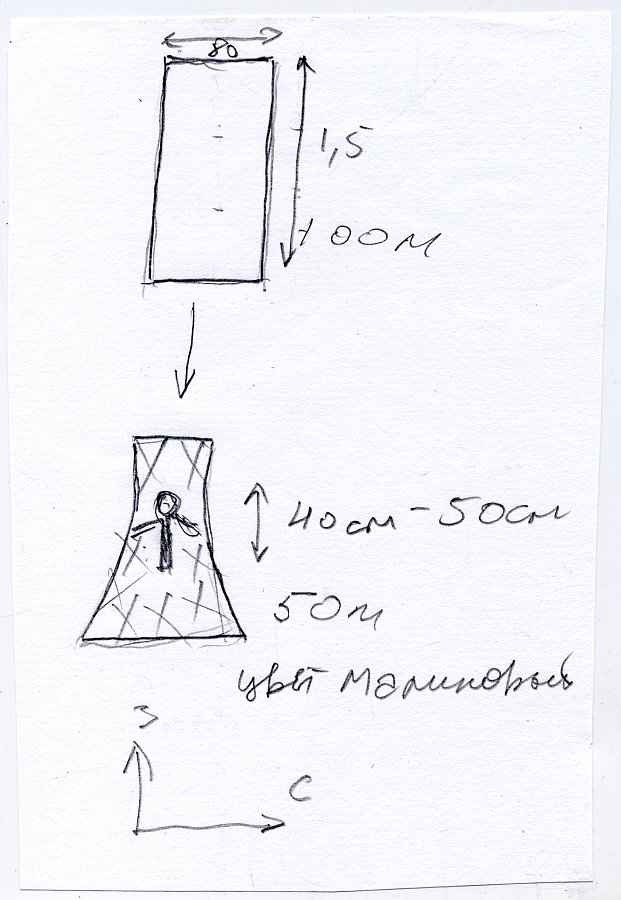 80
1,5
100м
40см - 50см
50м
цвет малиновый
З
С